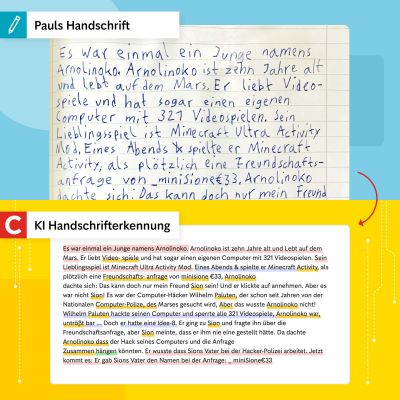 Pauls Handschrift
Es war einmal ein Junge namens
Arnolinoko. Arnolinoko ist zehn Jahre alt
und lebt auf dem Mars. Er liebt Video-
spiele und hat sogar einen eigenen
Computer mit 321 Videospielen. Sein
Lieblingsspiel ist Minecraft Ultra Activity
Mod. Eines Abends spielte er Minecraft
Activity, als plötzlich eine Freundschafts-
anfrage von _miniSione€33, Arnolinoko
dachte sich: Das kann doch nur mein Freund
C KI Handschrifterkennung
Es war einmal ein Junge namens Arnolinoko. Arnolinoko ist zehn Jahre alt und Lebt auf dem
Mars. Er liebt Video- spiele und hat sogar einen eigenen Computer mit 321 Videospielen. Sein
Lieblingsspiel ist Minecraft Ultra Activity Mod. Eines Abends & spielte er Minecraft Activity, als
plötzlich eine Freundschafts- anfrage von _minisione €33, Arnolinoko
dachte sich: Das kann doch nur mein Freund Sion sein! Und er klickte auf annehmen. Aber es
war nicht Sion! Es war der Computer-Häcker Wilhelm Paluten, der schon seit Jahren von der
Nationalen Computer-Polize, des Marses gesucht wird, Aber das wusste Arnolinoko nicht!
Wilhelm Paluten hackte seinen Computer und sperrte alle 321 Videospiele, Arnolinoko war,
untrößt bar ... Doch er hatte eine Idee-8. Er ging zu Sion und fragte ihn über die
Freundschaftsanfrage, aber Sion meinte, dass er ihm nie eine gestellt hätte. Da dachte
Arnolinoko dass der Hack seines Computers und die Anfrage
Zusammen hängen könnten. Er wusste dass Sions Vater bei der Hacker-Polizei arbeitet. Jetzt
kommt es: Er gab Sions Vater den Namen bei der Anfrage: _ miniSione€33